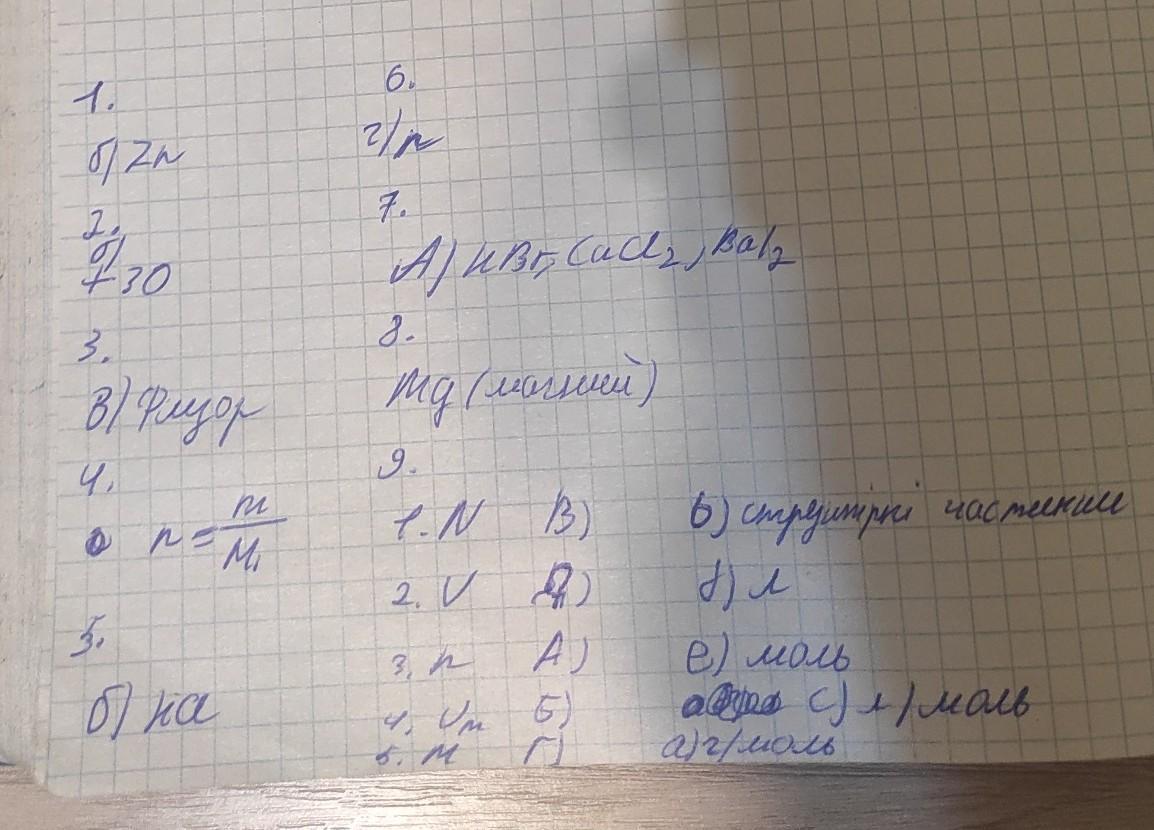 1.
б) Zn
2.
б)
+30
3.
В) Флуор
4.
n = m/M
5.
б) на
6.
г) n
7.
А) HBr, CaCl₂, BaI₂
8.
Mg (магний)
9.
1. N В) b) структурні частинки
2. V Д) d) л
3. n А) e) моль
4. Vm Б) c) л/моль
5. M Г) a) г/моль